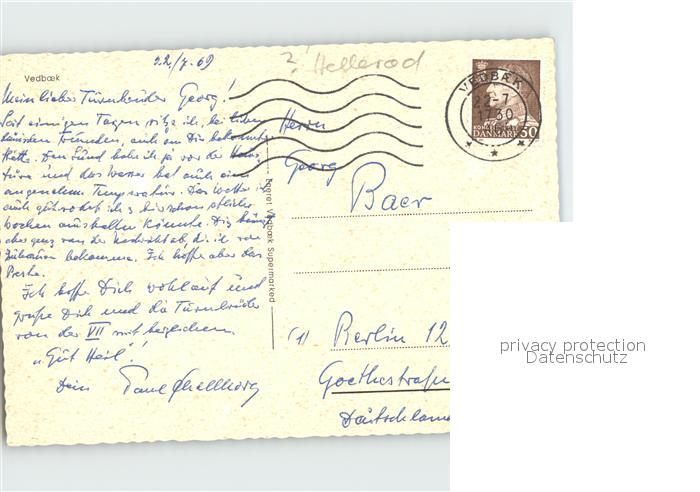 Vedbæk
22/7. 69
? Hellerød
Mein lieber Turnbruder Georg!
Seit einigen Tagen sitze ich, bei lieben
dänischen Freunden, auch am Dir bekannten
Den Sund habe ich ja vor der Haus-
türe und das Wasser hat auch eine
angenehme Temperatur. Das Wetter ist
auch gut, sodaß ich
Wochen aushalten könnte. Die
von der Nachricht ab, die ich von
Zuhause bekomme. Ich hoffe aber das
Beste.
Ich hoffe Dich wohlauf und
grüße Dich und die Turnbrüder
von der VII mit herzlichem
"Gut Heil"!
Dein Paul
Eneret Vedbæk Supermarked
VEDBÆK
22-7
17 30
DANMARK 50
Herrn
Georg
Baer
(1) Berlin 12,
Goethestraße
Deutschland
privacy protection
Datenschutz